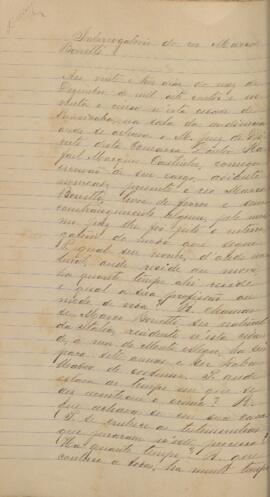 Interrogatorio do reo Marco
Bonetti
Aos vinte e tres dias do mez de
Dezembro de mil oito centos e no-
venta e cinco n'esta cidade de
na sala das audiencias
onde se achava o M. Juiz de Di-
reito desta Comarca Doutor Ra-
fael Marques Coutinho, comigo
escrivão de seu cargo, adiante
nomeado, presente o reo Marco
Bonetti, livre de ferros e sem
constrangimento algum, pelo mesmo
juiz lhe foi feito o interro-
gatorio do modo que segue
P. qual seu nome, d'onde na-
tural, onde reside ou mora,
ha quanto tempo ahi reside
e qual a sua profissão ou
meio de vida? R. chamar-
se Marco Bonetti, ser natural
da Italia, residente n'esta cida-
de, a rua de Monte Alegre, ha
para sete annos e ser traba-
lhador de P. onde
estava ao tempo em que se
deu o crime? R.
que achava-se em sua casa
P. se conhece as testemunhas
que juraram n'este processo?
Ha quanto tempo? R. que
conhece a todas, ha muito tempo